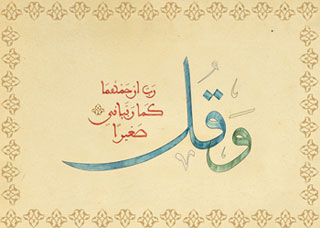 وَقُل
رَبِّ ارْحَمْهُمَا
كَمَا رَبَّيَانِي
صَغِيرًا